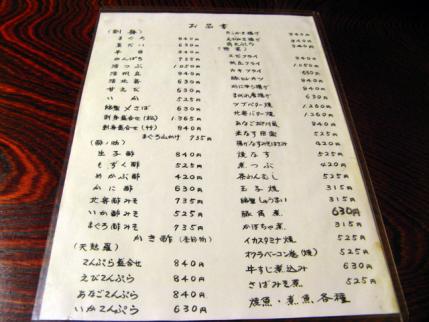 お品書
(刺身)
まぐろ 840円
真だい 630円
平目 840円
かんぱち 735円
活つぶ 1,050円
活帆立 840円
活北寄 630円
甘えび 630円
いか 525円
〆さば 630円
刺身盛合せ(松) 1,365円
刺身盛合せ(竹) 840円
まぐろ山かけ 735円
(酢の物)
生子酢 840円
もずく酢 525円
めかぶ酢 420円
かに酢 630円
北寄酢みそ 735円
いか酢みそ 525円
まぐろ酢みそ 735円
かき酢
(天麩羅)
てんぷら盛合せ 840円
えびてんぷら 840円
あなごてんぷら 840円
いかてんぷら 630円
エビフライ 840円
帆立フライ 1,050円
カキフライ
豚ヒレカツ 840円
630円
ツブバター焼 1,260円
北寄バター焼 1,260円
840円
525円
420円
焼なす 525円
煮つぶ 420円
茶わんむし 525円
玉子焼 315円
しゅうまい 315円
豚角煮 630円
かぼちゃ煮 315円
イカスタミナ焼 525円
オクラベーコン巻(焼) 525円
牛すじ煮込み 630円
さばみそ煮 525円
焼魚・煮魚 各種